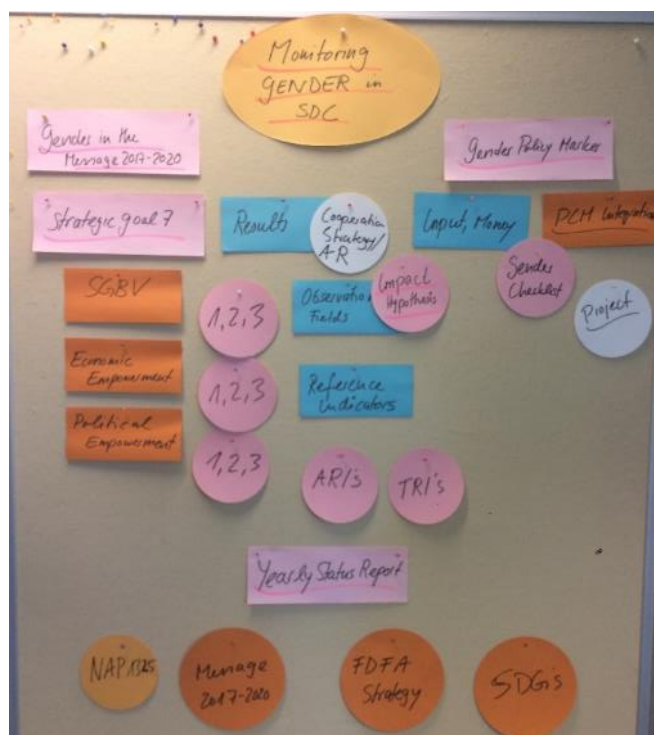 Monitoring
GENDER in
SDC
Gender in the
Message 2017-2020
Gender Policy Marker
Strategic goal 7
Results
Cooperation
Strategy/
A-R
Input, Money
PCM Integration
SGBV
1,2,3
Observation
Fields
Impact
Hypothesis
Gender
Checklist
Project
Economic
Empowerment
1,2,3
Reference
indicators
Political
Empowerment
1,2,3
ARI's
TRI's
Yearly Status Report
NAP 1325
Message
2017-2020
FDFA
Strategy
SDG's